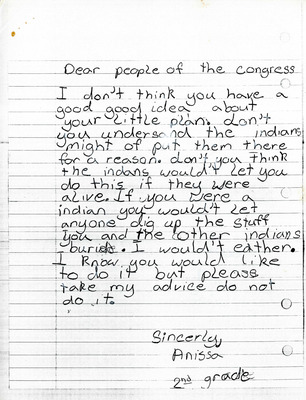 Dear people of the congress
I don't think you have a
good good idea about
your little plan. don't
you undersand the indians
might of put them there
for a reason. don't you think
the indans wouldn't let you
do this if they were
alive. If you were a
indian you wouldn't let
anyone dig up the staff
you and the other indians
buried. I wouldn't eather.
I know you would like
to do it but pleass
take my advice do not
do it.
Sincerly,
Anissa
2nd grade